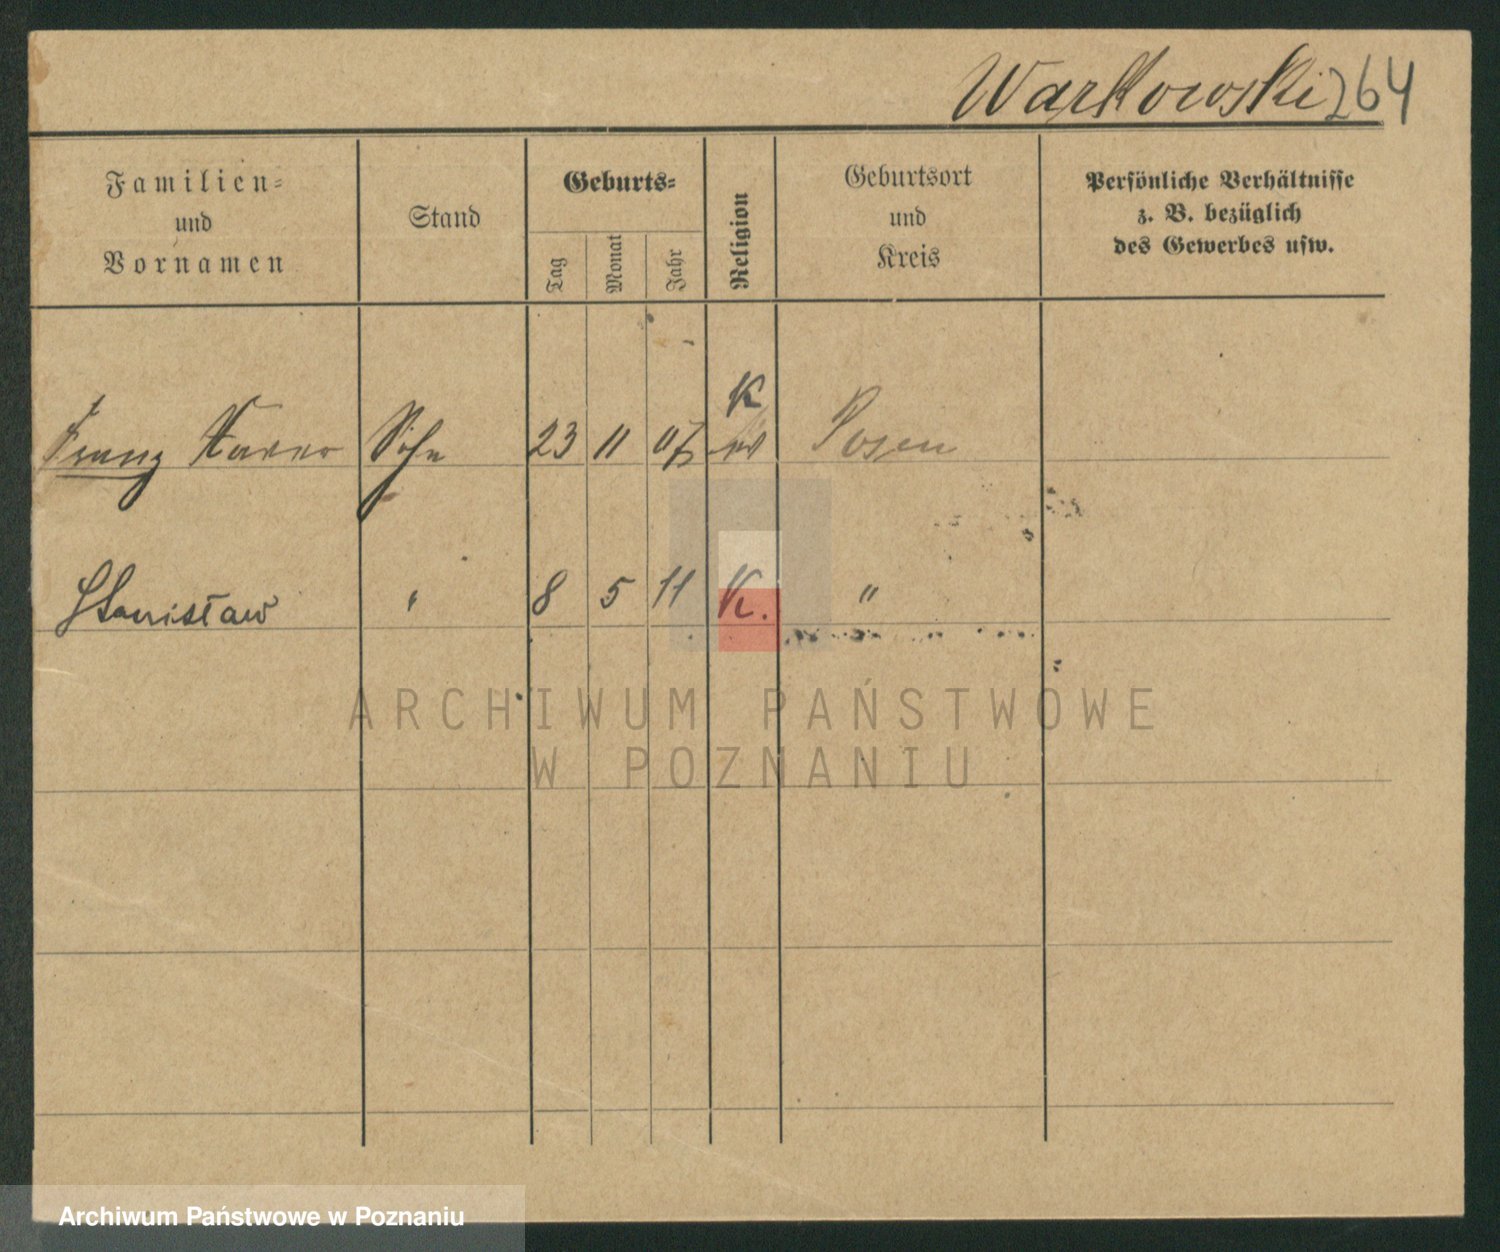 Warkowski 264
Familien=
und
Vornamen
Stand
Geburts=
Tag
Monat
Jahr
Religion
Geburtsort
und
Kreis
Persönliche Verhältnisse
z. B. bezüglich
des Gewerbes usw.
K
Franz Xaver Sohn 23 11 07 Posen
Stanisław " 8 5 11 K. "
ARCHIWUM PAŃSTWOWE
W POZNANIU
Archiwum Państwowe w Poznaniu